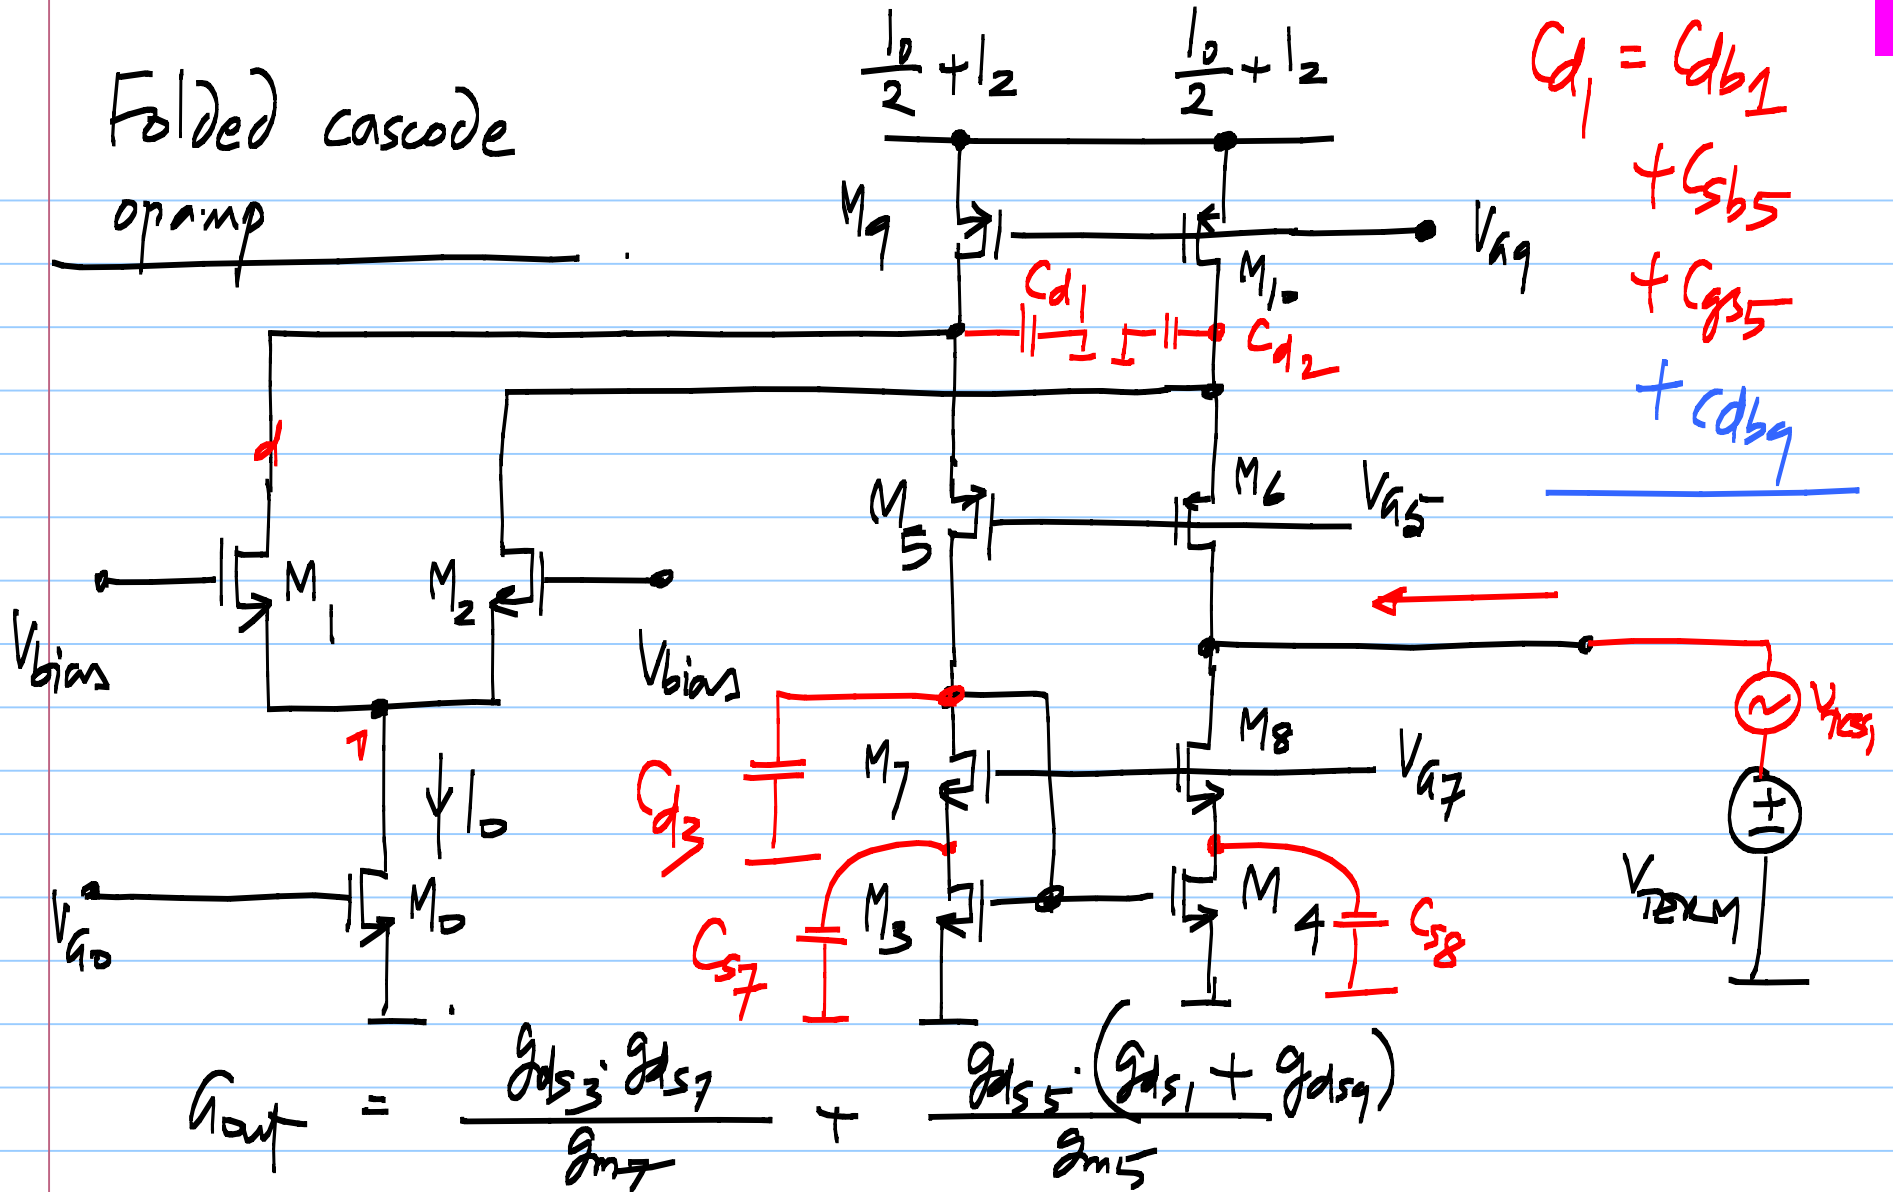 Folded cascode
opamp
I0/2 + I2
I0/2 + I2
Cd1 = Cdb1
+ Csb5
+ Cgs5
+ Cdb9
M9
M10
VG9
Cd1
Cd2
d
M5
M6
VG5
M1
M2
Vbias
Vbias
1
I0
M0
VG0
Cd3
M7
M8
VG7
Cs7
M3
M4
Cs8
Vtest
+
Gout = gds3·gds7/gm7 + gds5·(gds1 + gds9)/gm5